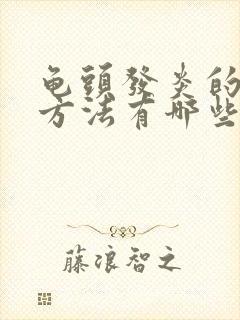 龟頭發炎的
方法有哪些
藤浪智之